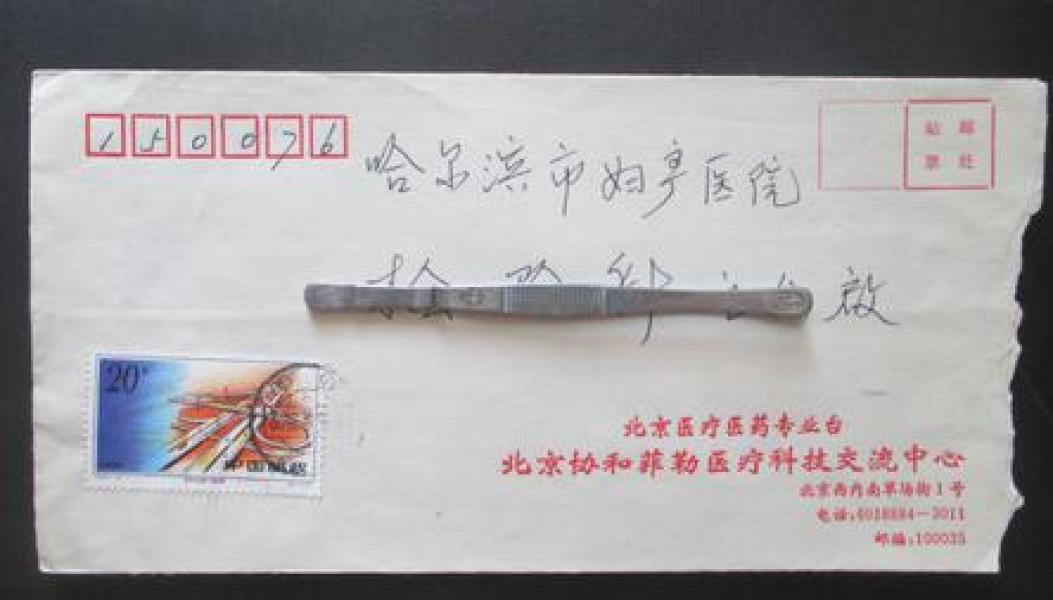 150076
哈尔滨市妇产医院
检验科 启
站 邮
票 处
20分
中国邮政
北京医疗医药专业台
北京协和菲勒医疗科技交流中心
北京西内南草场街1号
电话:6018884-3011
邮编:100035